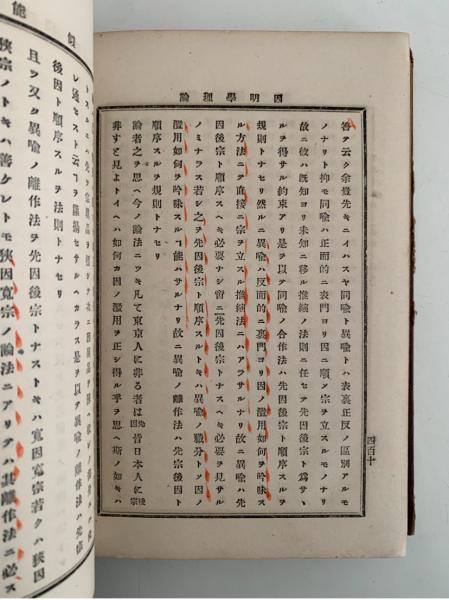 因明學理論
四百十
答ヲ云ク余輩先キニイハスヤ同喩ト異喩トハ表裏正反ノ區別アルモ
ノナリト抑モ同喩ハ正面的ニ表門ヨリ因ニ順ノ宗ヲ立スルモノナリ
故ニ彼ハ既知ヨリ未知ニ移ル推繹ノ法則ニ任セテ先因後宗ト爲サヽ
ルヲ得サル約束アリ是ヲ以テ同喩ノ合作法ハ先因後宗ト順序スルヲ
規則トナセリ然ルニ異喩ハ反面的ニ裏門ヨリ因ノ濫用如何ヲ吟味ス
ル方法ニテ直接ニ宗ヲ立スル推繹法ニハアラサルナリ故ニ異喩ハ先
因後宗ト順序スヘキ必要ナシ啻ニ先因後宗トナスヘキ必要ヲ見サル
ノミナラス若シ之ヲ先因後宗ト順序スルトキハ異喩ノ職分トノ因ノ
濫用如何ヲ吟味スルヿ能ハサルナリ故ニ異喩ノ離作法ハ先宗後因ト
順序スルヲ規則トナセリ
論者之ヲ思ヘ今ノ論法ニツキ凡テ東京人ニ非る者は先因昔日本人ニ後宗
非すと見よトイヘハ如何カ因ノ濫用ヲ正シ得ル乎ヲ思ヘ斯ノ如キハ
後因ト順序スルヲ法則トナセリ
且ヲ又タ異喩ノ離作法ヲ先因後宗トナストキハ寬因寬宗若クハ狹因
狹宗ノトキハ善ケレトモ狹因寬宗ノ論法ニアリテハ其離作法ニ必ス